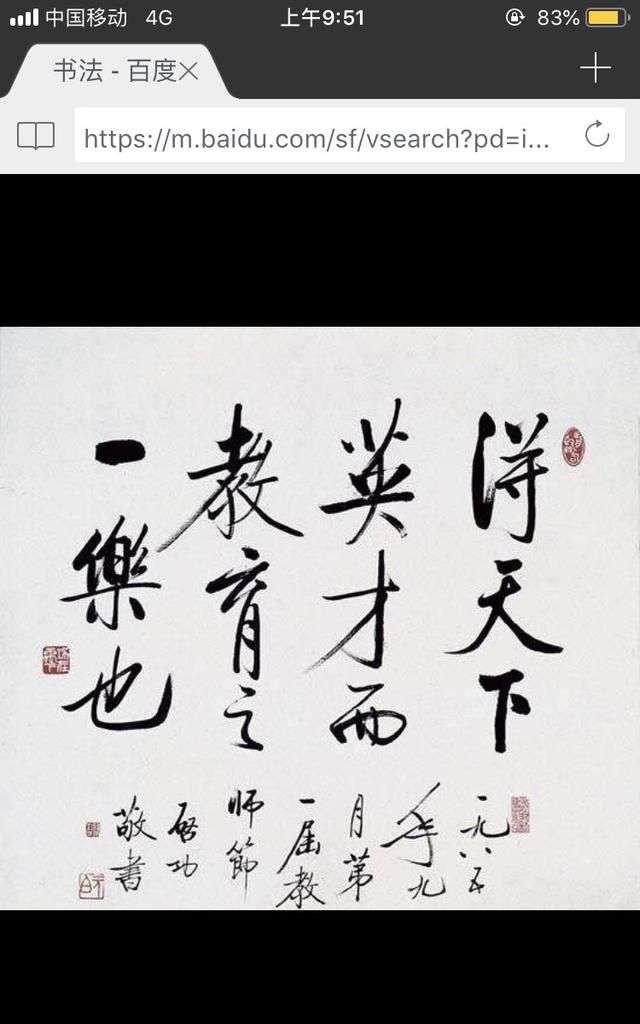 中国移动 4G 上午9:51 83%
书法 - 百度
https://m.baidu.com/sf/vsearch?pd=i...
得天下
英才而
教育之
一樂也
一九八五
年九
月第
一届教
師節
啓功
敬書